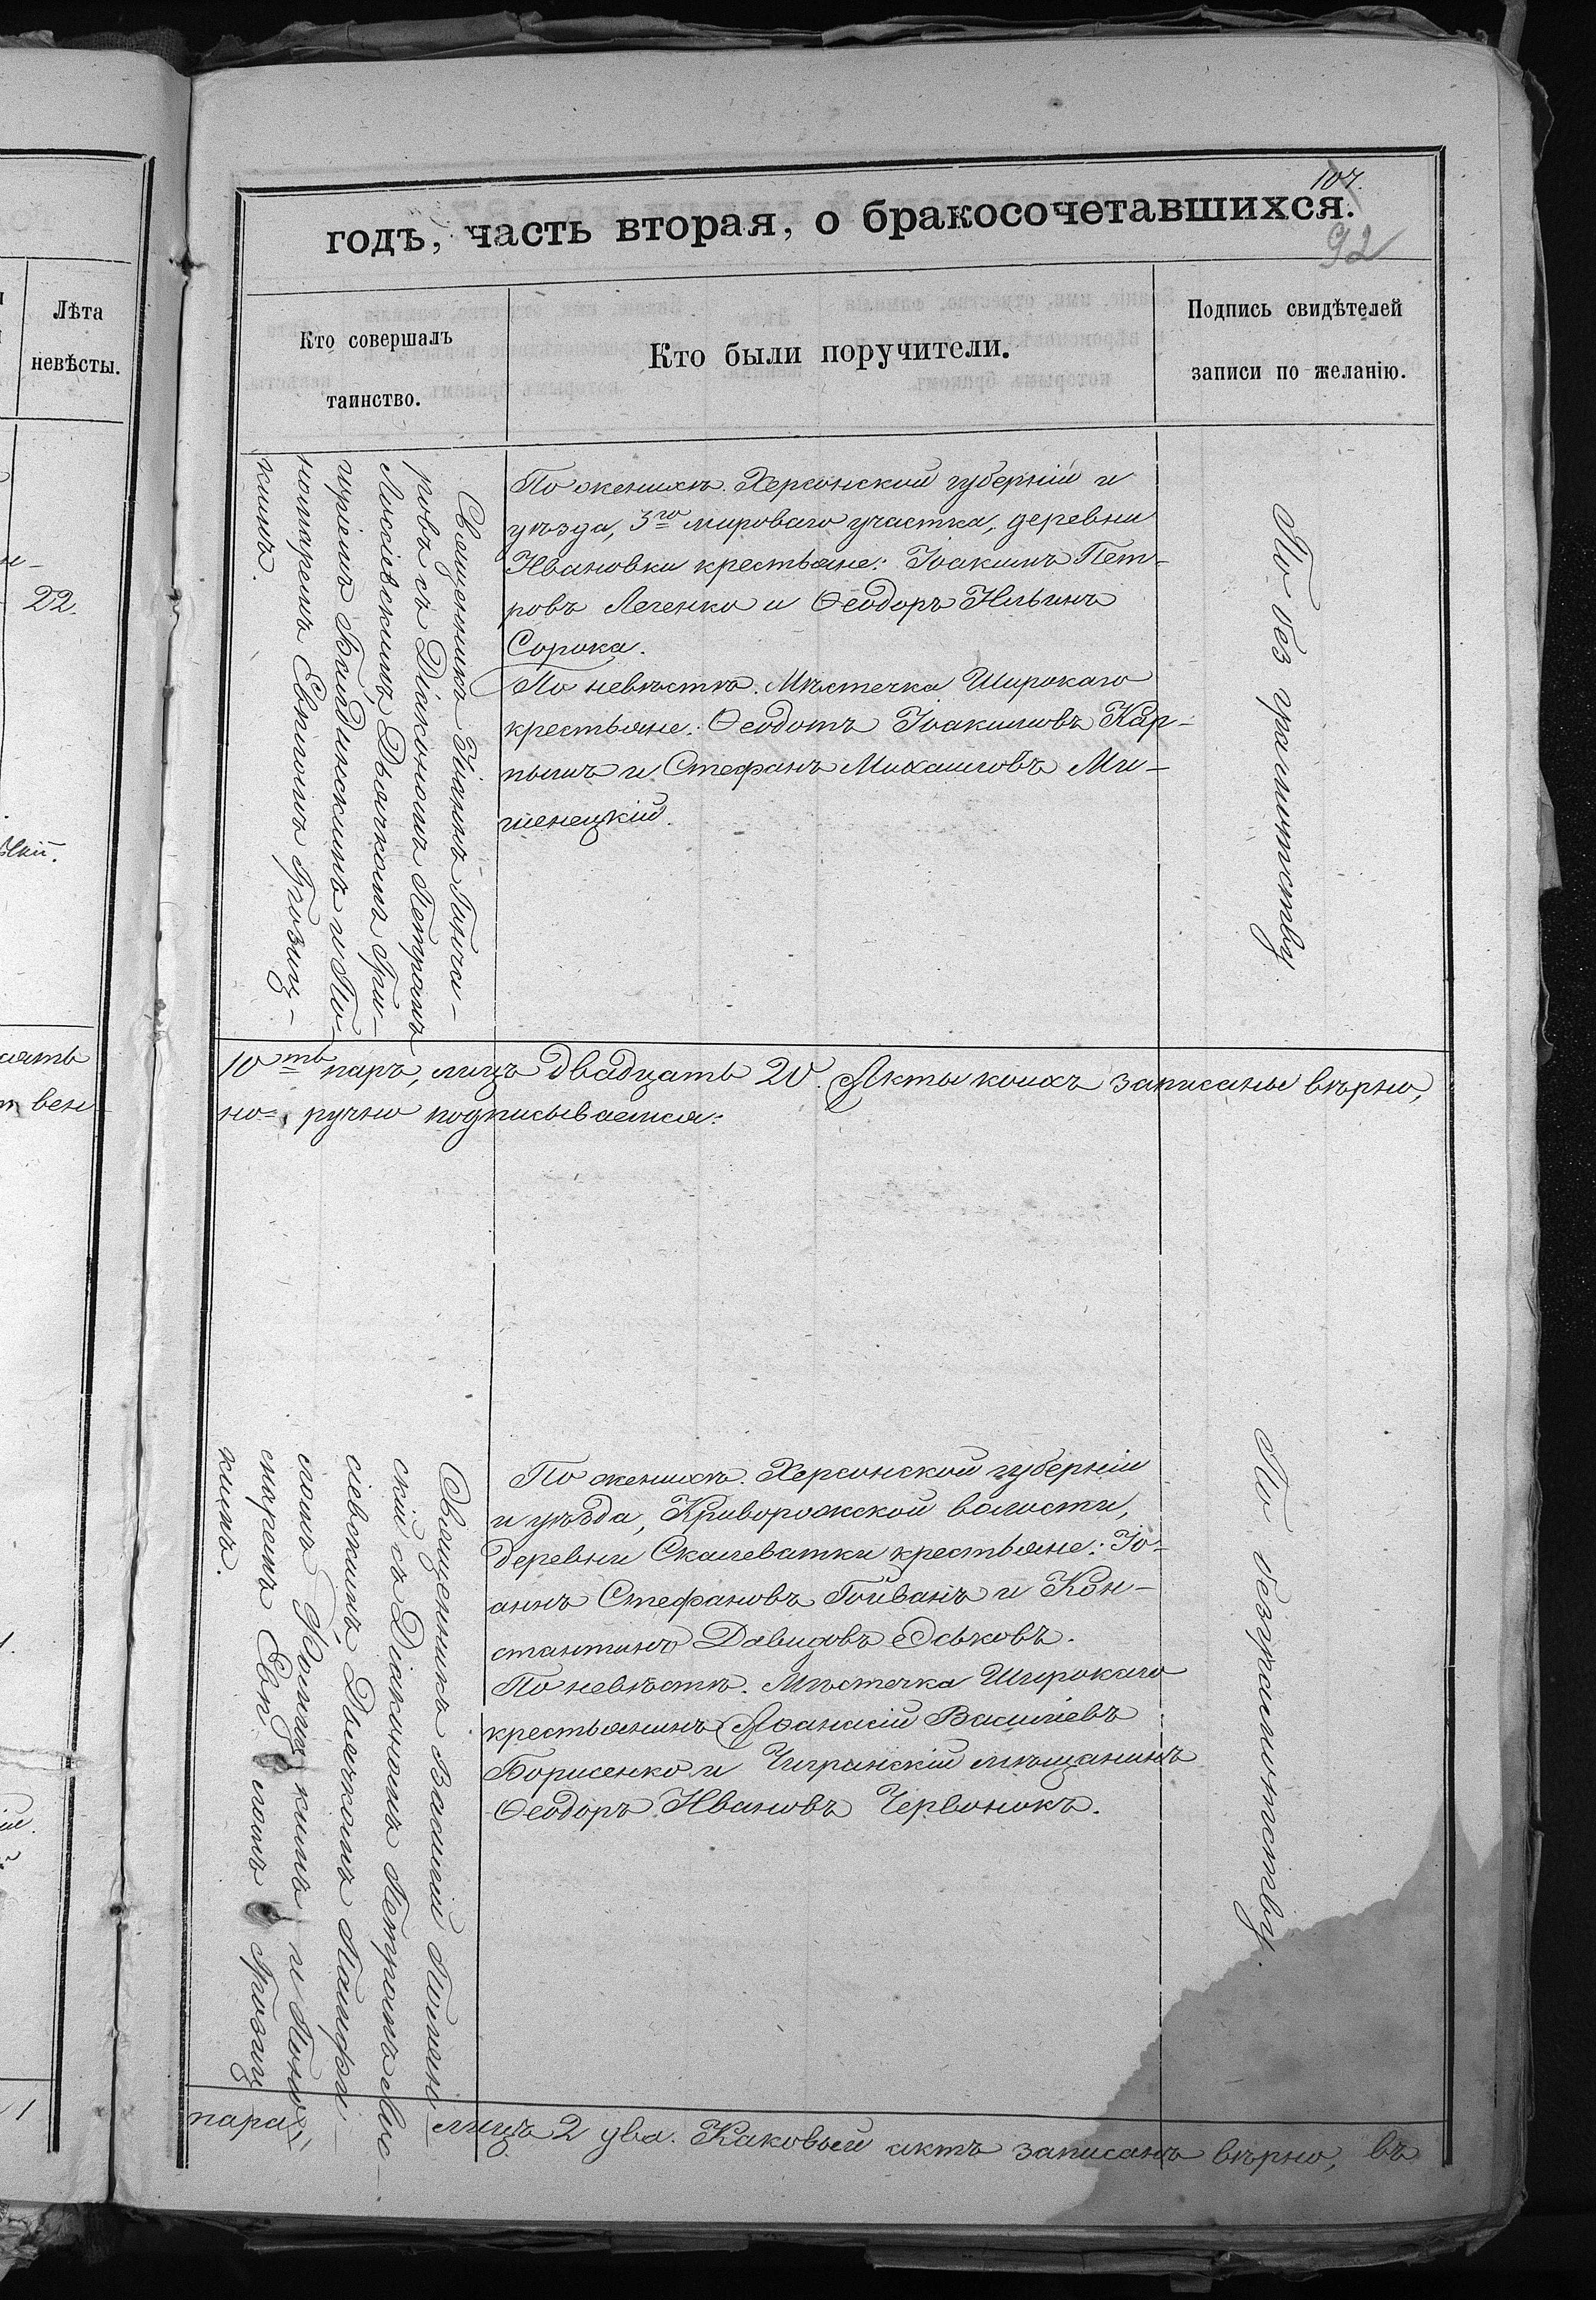 107.
годъ, часть вторая, о бракосочетавшихся.
92
Лѣта
невѣсты.
Кто совершалъ
таинство.
Кто были поручители.
Подпись свидѣтелей
записи по желанію.
22.
Священникъ Іоаннъ Гинча-
ровъ съ Діакономъ Петромъ
Лиссіевскимъ, Дьячкомъ Гри-
горіемъ Байдинскимъ и По-
номаремъ Евгломъ Грозиц-
кимъ.
По женихѣ. Херсонской губерніи и
уѣзда, 3го мироваго участка, деревни
Ивановки крестьяне: Іоакимъ Пет-
ровъ Легенко и Ѳеодоръ Ильинъ
Сорока.
По невѣстѣ. Мѣстечка Широкаго
крестьяне: Ѳеодотъ Іоакимовъ Кар-
пышъ и Стефанъ Михаиловъ Ми-
шенецкій.
По безграмотству
10ть паръ, лицъ двадцать 20. Акты коихъ записаны вѣрно,
вен-
но-ручно подписываемся:
Священникъ Василій Полян-
скій съ Діакономъ Петромъ Лис-
сіевскимъ, Дьячкомъ Памфи-
ломъ кимъ и Поно-
маремъ Грозиц-
кимъ.
По женихѣ. Херсонской губерніи
и уѣзда, Криворожской волости,
деревни Скалеватки крестьяне: Іо-
аннъ Стефановъ Гойванъ и Кон-
стантинъ Давидовъ Оськовъ.
По невѣстѣ. Мѣстечка Широкаго
крестьянинъ Аѳанасій Васильевъ
Борисенко и Чигринскій мѣщанинъ
Ѳеодоръ Ивановъ Червонокъ.
По безграмотству
1 пара, лицъ 2 два. Каковый актъ записанъ вѣрно, въ